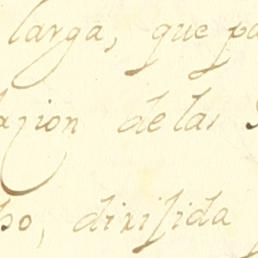 larga, que pa
azion de las
bo, dirijida